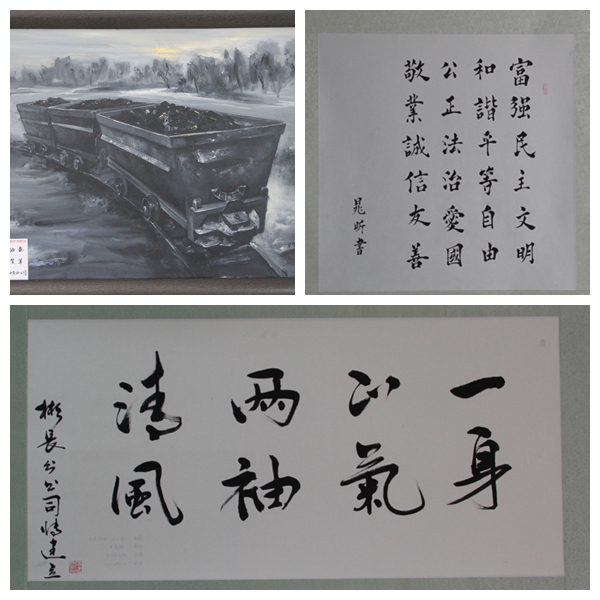 富强民主文明
和諧平等自由
公正法治愛國
敬業誠信友善
晁昕書
一身
正氣
两袖
清風
彬長公司